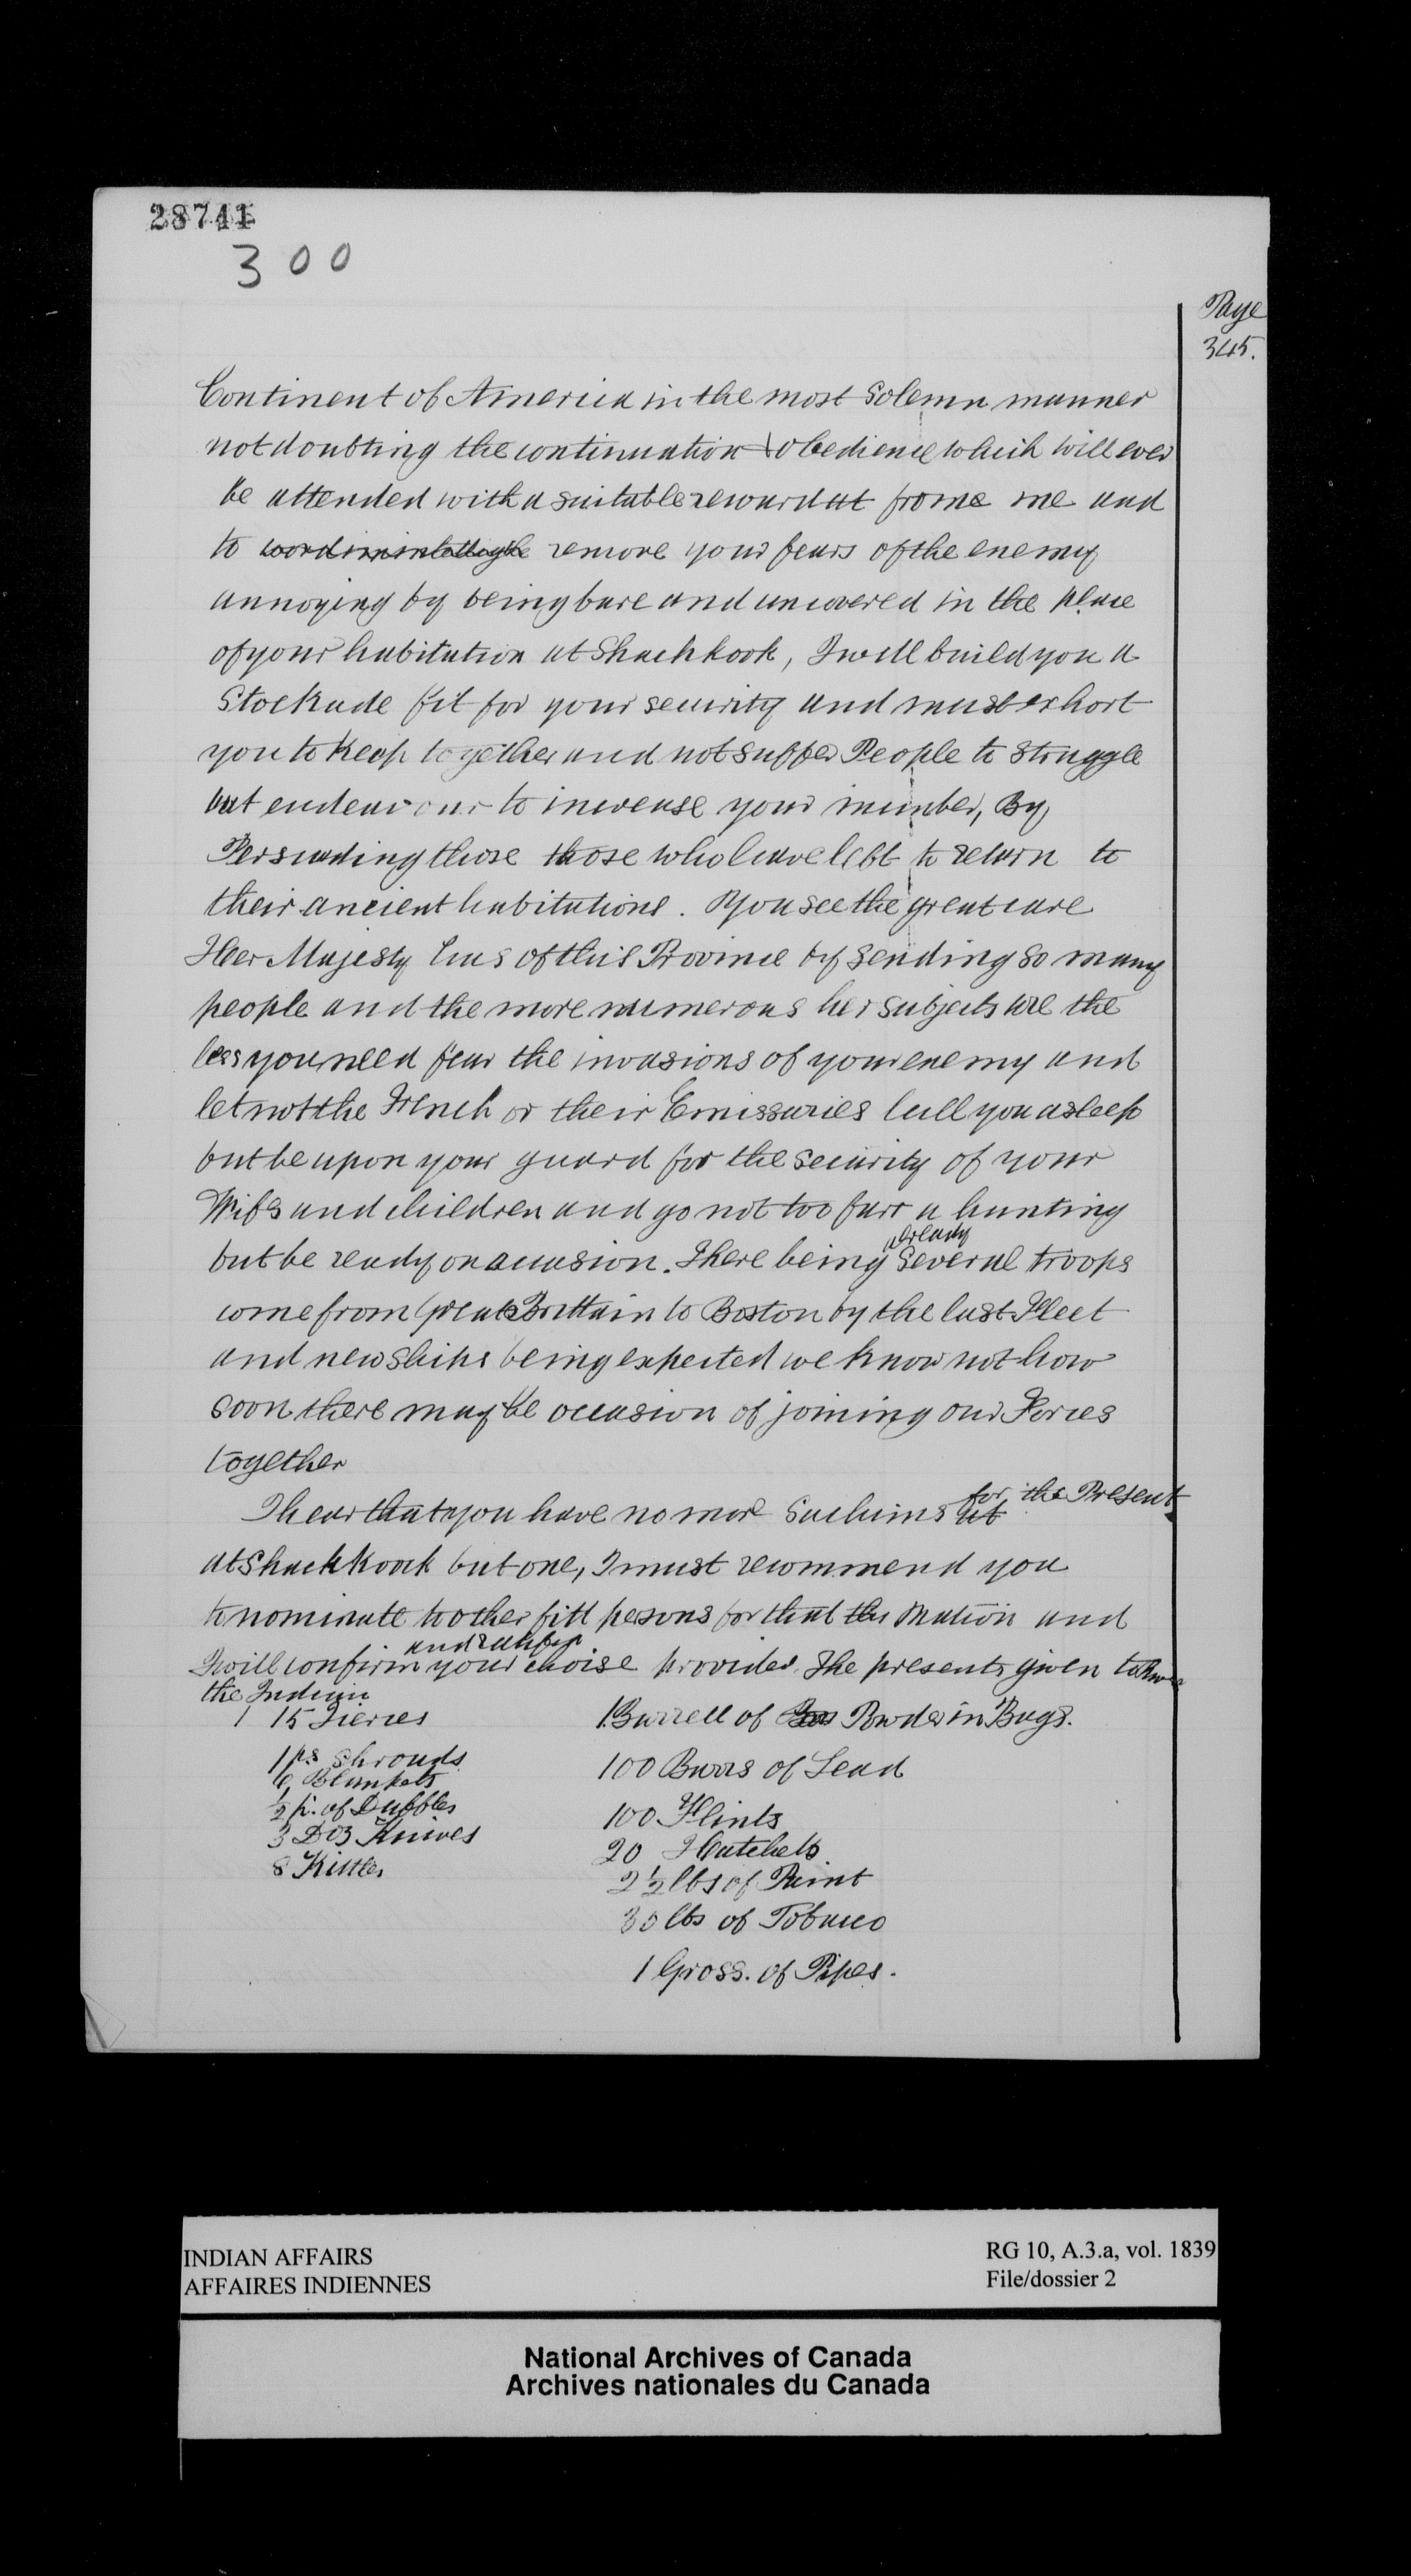 28741
300
Page
345.
Continent of America in the most Solemn manner
not doubting the continuation & obedience which will ever
be attended with a suitable reward at from me and
to remove your fears of the enemy
annoying by being bare and uncovered in the place
of your habitation at Shachkook, I will build you a
Stockade fit for your security and must exhort
you to Keep together and not suffer People to Struggle
but endeavour to increase your number, By
Persuading those those who have left to return to
their ancient habitations. You see the great care
Her Majesty has of this Province by sending so many
people and the more numerous her subjects are the
less you need fear the invasions of your enemy and
let not the French or their Emissaries lull you asleep
but be upon your guard for the security of your
Wifes and children and go not too farr a hunting
but be ready on occasion. There being already Several troops
come from Great Brittain to Boston by the last Fleet
and new Ships being expected we know not how
soon there may be occasion of joining our Forces
together
I hear that you have no more Sachims at for the Present
at Shachkook but one, I must recommend you
to nominate to other fitt persons for that the Nation and
I will confirm and ratify your choise provided. The presents given to
the Indian
1 15 Tierces
1 ps Shrouds
6 Blankets
½ p. of Duffles
3 Doz Knives
8 Kittles
1 Barrell of Powder in Bags.
100 Barrs of Lead
100 Flints
20 Hatchets
2½ lbs of Paint
30 lbs of Tobacco
1 Gross. of Pipes.
INDIAN AFFAIRS
AFFAIRES INDIENNES
RG 10, A.3.a, vol. 1839
File/dossier 2
National Archives of Canada
Archives nationales du Canada